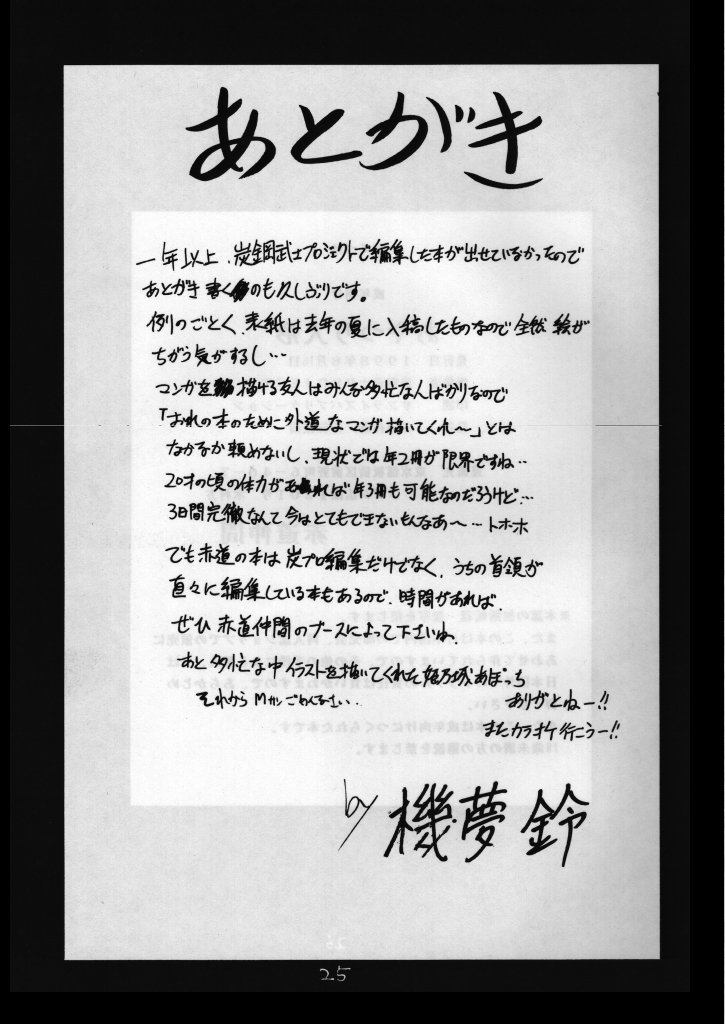 あとがき
一年以上、炭鋼武士プロジェクトで編集した本が出せていなかったので
あとがき書くのも久しぶりです。
例のごとく、表紙は去年の夏に入稿したものなので全然絵が
ちがう気がするし…
マンガを描ける友人はみんな多忙な人ばかりなので
「おれの本のために外道なマンガ描いてくれ〜」とは
なかなか頼めないし、現状では年2冊が限界ですね…
20才の頃の体力があれば年3冊も可能なのだろうけど…
3日間完徹なんて今はとてもできないもんなあ〜…トホホ
でも赤道の本は炭プロ編集だけでなく、うちの首領が
直々に編集している本もあるので、時間があれば、
ぜひ赤道仲間のブースによって下さいね。
あと多忙な中イラストを描いてくれた あぽっち
ありがとねー!!
それから Mカンごめんなさい.
またカラオケ行こうー!!
by 機夢鈴
25